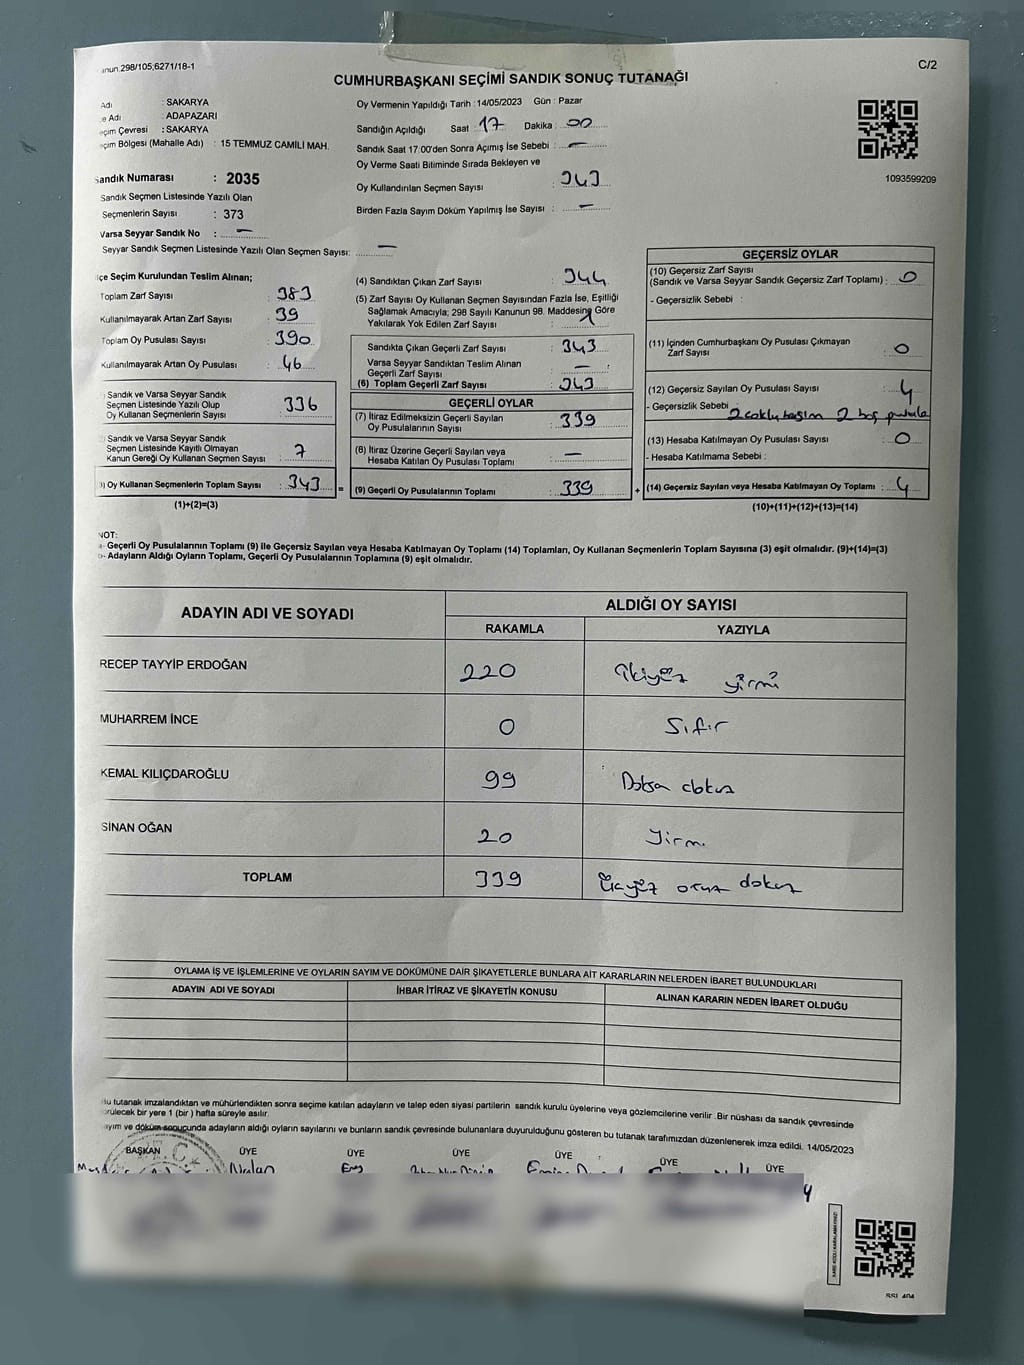 anun.298/105;6271/18-1
C/2
CUMHURBAŞKANI SEÇİMİ SANDIK SONUÇ TUTANAĞI
Adı : SAKARYA
e Adı : ADAPAZARI
eçim Çevresi : SAKARYA
çim Bölgesi (Mahalle Adı) : 15 TEMMUZ CAMİLİ MAH.
Sandık Numarası : 2035
Sandık Seçmen Listesinde Yazılı Olan
Seçmenlerin Sayısı : 373
Varsa Seyyar Sandık No : —
Seyyar Sandık Seçmen Listesinde Yazılı Olan Seçmen Sayısı: —
Oy Vermenin Yapıldığı Tarih : 14/05/2023 Gün : Pazar
Sandığın Açıldığı Saat 17 Dakika 00
Sandık Saat 17:00'den Sonra Açımış İse Sebebi : —
Oy Verme Saati Bitiminde Sırada Bekleyen ve
Oy Kullandırılan Seçmen Sayısı : 343
Birden Fazla Sayım Döküm Yapılmış İse Sayısı : —
1093599209
lçe Seçim Kurulundan Teslim Alınan;
Toplam Zarf Sayısı : 383
Kullanılmayarak Artan Zarf Sayısı : 39
Toplam Oy Pusulası Sayısı : 390
Kullanılmayarak Artan Oy Pusulası : 46
) Sandık ve Varsa Seyyar Sandık
Seçmen Listesinde Yazılı Olup
Oy Kullanan Seçmenlerin Sayısı : 336
) Sandık ve Varsa Seyyar Sandık
Seçmen Listesinde Kayıtlı Olmayan
Kanun Gereği Oy Kullanan Seçmen Sayısı : 7
3) Oy Kullanan Seçmenlerin Toplam Sayısı : 343 =
(1)+(2)=(3)
(4) Sandıktan Çıkan Zarf Sayısı : 344
(5) Zarf Sayısı Oy Kullanan Seçmen Sayısından Fazla İse, Eşitliği
Sağlamak Amacıyla; 298 Sayılı Kanunun 98. Maddesine Göre
Yakılarak Yok Edilen Zarf Sayısı : 1
Sandıkta Çıkan Geçerli Zarf Sayısı : 343
Varsa Seyyar Sandıktan Teslim Alınan
Geçerli Zarf Sayısı : —
(6) Toplam Geçerli Zarf Sayısı : 343
GEÇERLİ OYLAR
(7) İtiraz Edilmeksizin Geçerli Sayılan
Oy Pusulalarının Sayısı : 339
(8) İtiraz Üzerine Geçerli Sayılan veya
Hesaba Katılan Oy Pusulası Toplamı : —
(9) Geçerli Oy Pusulalarının Toplamı : 339 +
GEÇERSİZ OYLAR
(10) Geçersiz Zarf Sayısı
(Sandık ve Varsa Seyyar Sandık Geçersiz Zarf Toplamı) : 0
- Geçersizlik Sebebi :
(11) İçinden Cumhurbaşkanı Oy Pusulası Çıkmayan
Zarf Sayısı : 0
(12) Geçersiz Sayılan Oy Pusulası Sayısı : 4
- Geçersizlik Sebebi : 2 çoklu basım 2 boş pusula
(13) Hesaba Katılmayan Oy Pusulası Sayısı : 0
- Hesaba Katılmama Sebebi :
(14) Geçersiz Sayılan veya Hesaba Katılmayan Oy Toplamı : 4
(10)+(11)+(12)+(13)=(14)
NOT:
a- Geçerli Oy Pusulalarının Toplamı (9) ile Geçersiz Sayılan veya Hesaba Katılmayan Oy Toplamı (14) Toplamları, Oy Kullanan Seçmenlerin Toplam Sayısına (3) eşit olmalıdır. (9)+(14)=(3)
b- Adayların Aldığı Oyların Toplamı, Geçerli Oy Pusulalarının Toplamına (9) eşit olmalıdır.
ADAYIN ADI VE SOYADI
ALDIĞI OY SAYISI
RAKAMLA YAZIYLA
RECEP TAYYİP ERDOĞAN 220 ikiyüz yirmi
MUHARREM İNCE 0 Sıfır
KEMAL KILIÇDAROĞLU 99 Doksan dokuz
SİNAN OĞAN 20 Yirmi
TOPLAM 339 Üçyüz otuz dokuz
OYLAMA İŞ VE İŞLEMLERİNE VE OYLARIN SAYIM VE DÖKÜMÜNE DAİR ŞİKAYETLERLE BUNLARA AİT KARARLARIN NELERDEN İBARET BULUNDUKLARI
ADAYIN ADI VE SOYADI İHBAR İTİRAZ VE ŞİKAYETİN KONUSU ALINAN KARARIN NEDEN İBARET OLDUĞU
Bu tutanak imzalandıktan ve mühürlendikten sonra seçime katılan adayların ve talep eden siyasi partilerin sandık kurulu üyelerine veya gözlemcilerine verilir. Bir nüshası da sandık çevresinde
örülecek bir yere 1 (bir) hafta süreyle asılır.
ayım ve döküm sonucunda adayların aldığı oyların sayılarını ve bunların sandık çevresinde bulunanlara duyurulduğunu gösteren bu tutanak tarafımızdan düzenlenerek imza edildi. 14/05/2023
BAŞKAN ÜYE ÜYE ÜYE ÜYE ÜYE ÜYE
T.C.